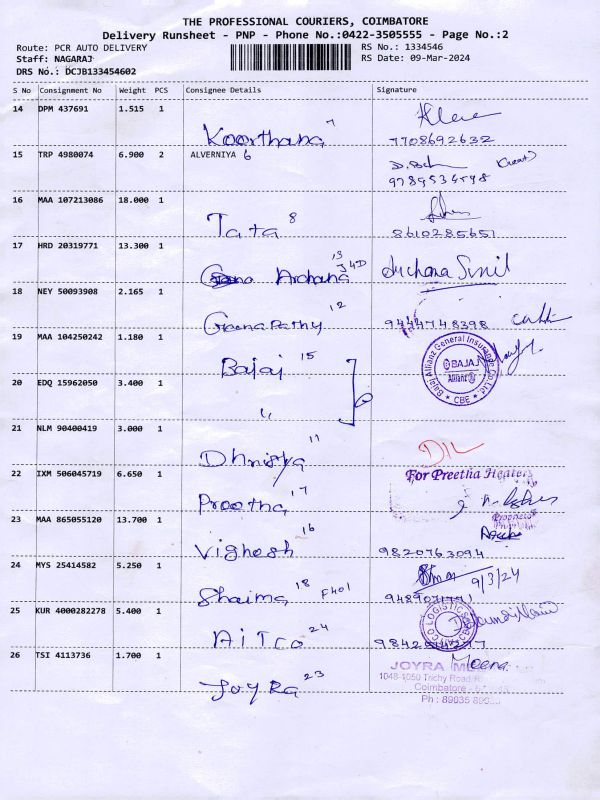 THE PROFESSIONAL COURIERS, COIMBATORE
Delivery Runsheet - PNP - Phone No.:0422-3505555 - Page No.:2
Route: PCR AUTO DELIVERY
RS No.: 1334546
Staff: NAGARAJ
RS Date: 09-Mar-2024
DRS No.: DCJB133454602
S No Consignment No Weight PCS Consignee Details Signature
14 DPM 437691 1.515 1
Koorthana 7
7708692632
15 TRP 4980074 6.900 2 ALVERNIYA 6
9789534598
16 MAA 107213086 18.000 1
Tata 8
8610285651
17 HRD 20319771 13.300 1
Archana 13 J4D
Archana Sunil
18 NEY 50093908 2.165 1
Ganapathy 12
9444748398
19 MAA 104250242 1.180 1
Bajaj 15
Bajaj Allianz General Insurance Co. Ltd.
BAJAJ
Allianz
CBE
20 EDQ 15962050 3.400 1
"
21 NLM 90400419 3.000 1
Dhnisya 11
22 IXM 506045719 6.650 1
Preetha 17
For Preetha Heaters
23 MAA 865055120 13.700 1
Vighesh 16
9820763094
24 MYS 25414582 5.250 1
Shaima 18 F401
9/3/24
25 KUR 4000282278 5.400 1
AITCO 24
26 TSI 4113736 1.700 1
JoyRa 23
Meena
JOYRA
1048-1050 Trichy Road
Coimbatore
Ph : 89035